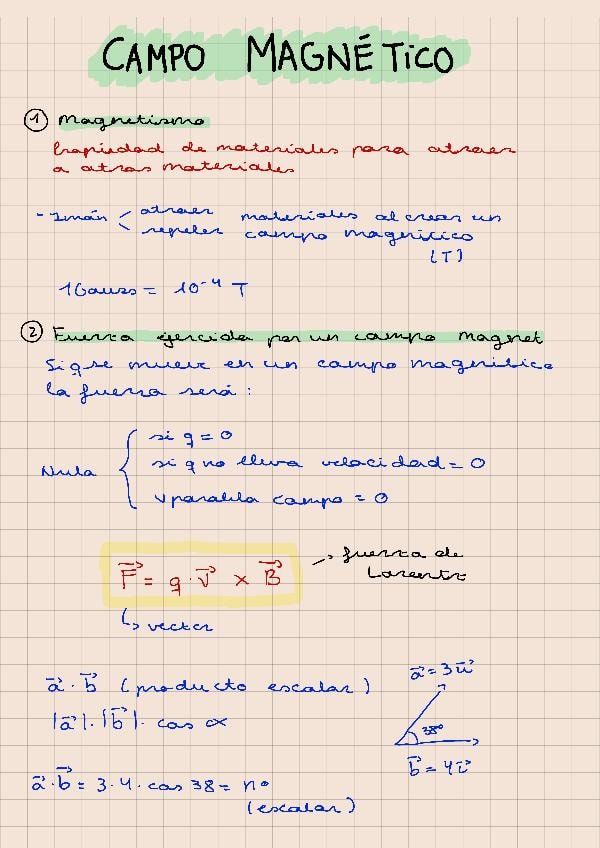 CAMPO MAGNÉTICO
① Magnetismo
Propiedad de materiales para atraer
a otros materiales
- Imán < atraer materiales al crear un
repeler campo magnético
(T)
1Gauss = 10⁻⁴ T
② Fuerza ejercida por un campo magnet
Si q se mueve en un campo magnético
la fuerza será:
Nula { si q = 0
si q no lleva velocidad = 0
v paralela campo = 0
F⃗ = q · v⃗ × B⃗ → fuerza de
Lorentz
↳ vector
a⃗ · b⃗ (producto escalar)
|a⃗| · |b⃗| · cos α
a⃗ = 3u⃗
38°
b⃗ = 4u⃗
a⃗ · b⃗ = 3 · 4 · cos 38 = nº
(escalar)